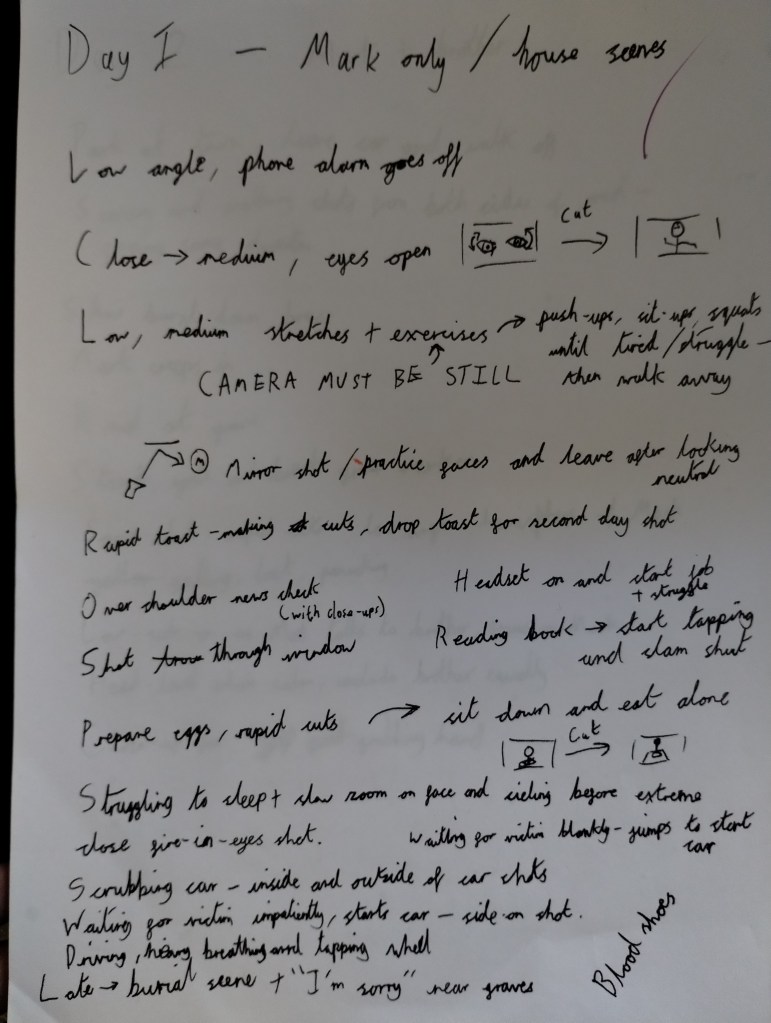 Day 1 — Mark only / house scenes
Low angle, phone alarm goes off
Close → medium, eyes open
Cut
Low, medium stretches + exercises → push-ups, sit-ups, squats
until tired/struggle –
then walk away
CAMERA MUST BE STILL
M
Mirror shot / practice faces and leave after looking
neutral
Rapid toast-making cuts, drop toast for second day shot
Over shoulder news check
(with close-ups)
Headset on and start job
+ struggle
Shot through window
Reading book → start tapping
and slam shut
Prepare eggs, rapid cuts → sit down and eat alone
Cut
Struggling to sleep + slow zoom on face and cieling before extreme
close fire-in-eyes shot.
Waiting for victim blankly - jumps to start
car
Scrubbing car – inside and outside of car shots
Waiting for victim impatiently, starts car – side-on shot.
Driving, heavy breathing and tapping wheel
Late → burial scene + "I'm sorry" near graves
Blood shoes